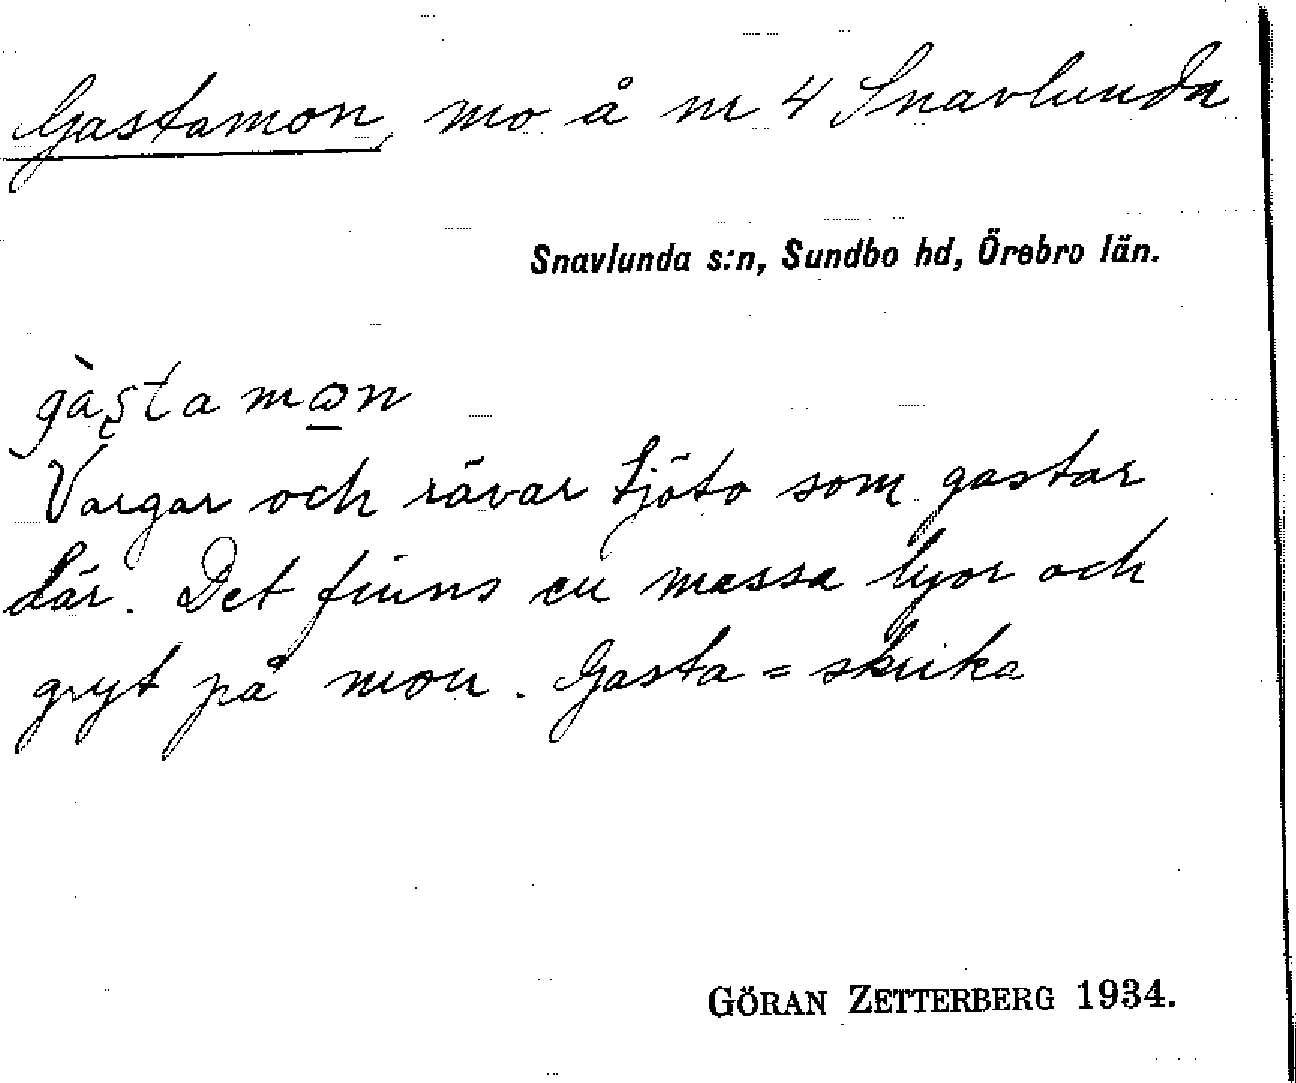 Gastamon, mo å nr 4 Snavlunda
Snavlunda s:n, Sundbo hd, Örebro län.
gàsta mon
Vargar och rävar tjöto som gastar
där. Det finns en massa lyor och
gryt på mon. Gasta = skrika
GÖRAN ZETTERBERG 1934.